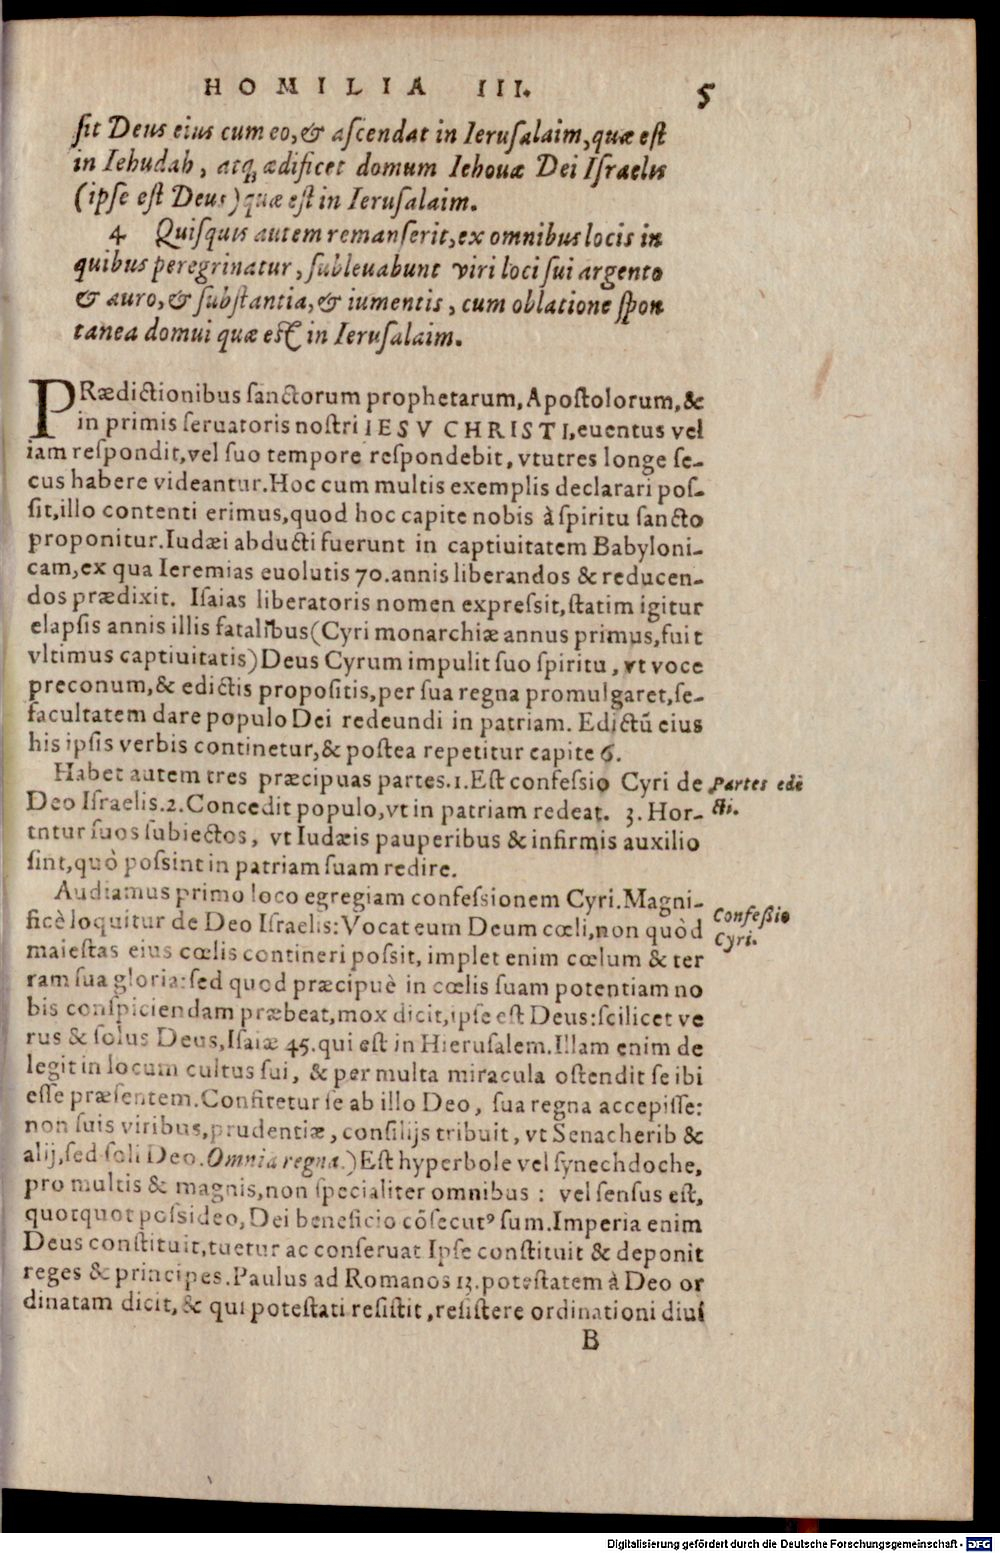 HOMILIA III. 5
ſit Deus eius cum eo, & aſcendat in Ieruſalaim, quæ eſt
in Iehudah, atq; ædificet domum Iehouæ Dei Iſraelis
(ipſe eſt Deus) quæ eſt in Ieruſalaim.
4 Quiſquis autem remanſerit, ex omnibus locis in
quibus peregrinatur, ſubleuabunt viri loci ſui argento
& auro, & ſubſtantia, & iumentis, cum oblatione ſpon
tanea domui quæ eſt in Ieruſalaim.
PRædictionibus ſanctorum prophetarum, Apoſtolorum, &
in primis ſeruatoris noſtri IESV CHRISTI, euentus vel
iam reſpondit, vel ſuo tempore reſpondebit, vtutres longe ſe-
cus habere videantur. Hoc cum multis exemplis declarari poſ-
ſit, illo contenti erimus, quod hoc capite nobis à ſpiritu ſancto
proponitur. Iudæi abducti fuerunt in captiuitatem Babyloni-
cam, ex qua Ieremias euolutis 70. annis liberandos & reducen-
dos prædixit. Iſaias liberatoris nomen expreſsit, ſtatim igitur
elapſis annis illis fatalibus (Cyri monarchiæ annus primus, fuit
vltimus captiuitatis) Deus Cyrum impulit ſuo ſpiritu, vt voce
preconum, & edictis propoſitis, per ſua regna promulgaret, ſe-
facultatem dare populo Dei redeundi in patriam. Edictũ eius
his ipſis verbis continetur, & poſtea repetitur capite 6.
Habet autem tres præcipuas partes. 1. Eſt confeſsio Cyri de
Partes edi
Deo Iſraelis. 2. Concedit populo, vt in patriam redeat. 3. Hor-
cti.
tntur ſuos ſubiectos, vt Iudæis pauperibus & infirmis auxilio
ſint, quò poſsint in patriam ſuam redire.
Audiamus primo loco egregiam confeſsionem Cyri. Magni-
Confeßio
ficè loquitur de Deo Iſraelis: Vocat eum Deum cœli, non quòd
Cyri.
maieſtas eius cœlis contineri poſsit, implet enim cœlum & ter
ram ſua gloria: ſed quod præcipuè in cœlis ſuam potentiam no
bis conſpiciendam præbeat, mox dicit, ipſe eſt Deus: ſcilicet ve
rus & ſolus Deus, Iſaiæ 45. qui eſt in Hieruſalem. Illam enim de
legit in locum cultus ſui, & per multa miracula oſtendit ſe ibi
eſſe præſentem. Confitetur ſe ab illo Deo, ſua regna accepiſſe:
non ſuis viribus, prudentiæ, conſilijs tribuit, vt Senacherib &
alij, ſed ſoli Deo. Omnia regna.) Eſt hyperbole vel ſynechdoche,
pro multis & magnis, non ſpecialiter omnibus: vel ſenſus eſt,
quotquot poſsideo, Dei beneficio cõſecutꝰ ſum. Imperia enim
Deus conſtituit, tuetur ac conſeruat Ipſe conſtituit & deponit
reges & principes. Paulus ad Romanos 13. poteſtatem à Deo or
dinatam dicit, & qui poteſtati reſiſtit, reſiſtere ordinationi diui
B
Digitalisierung gefördert durch die Deutsche Forschungsgemeinschaft - DFG